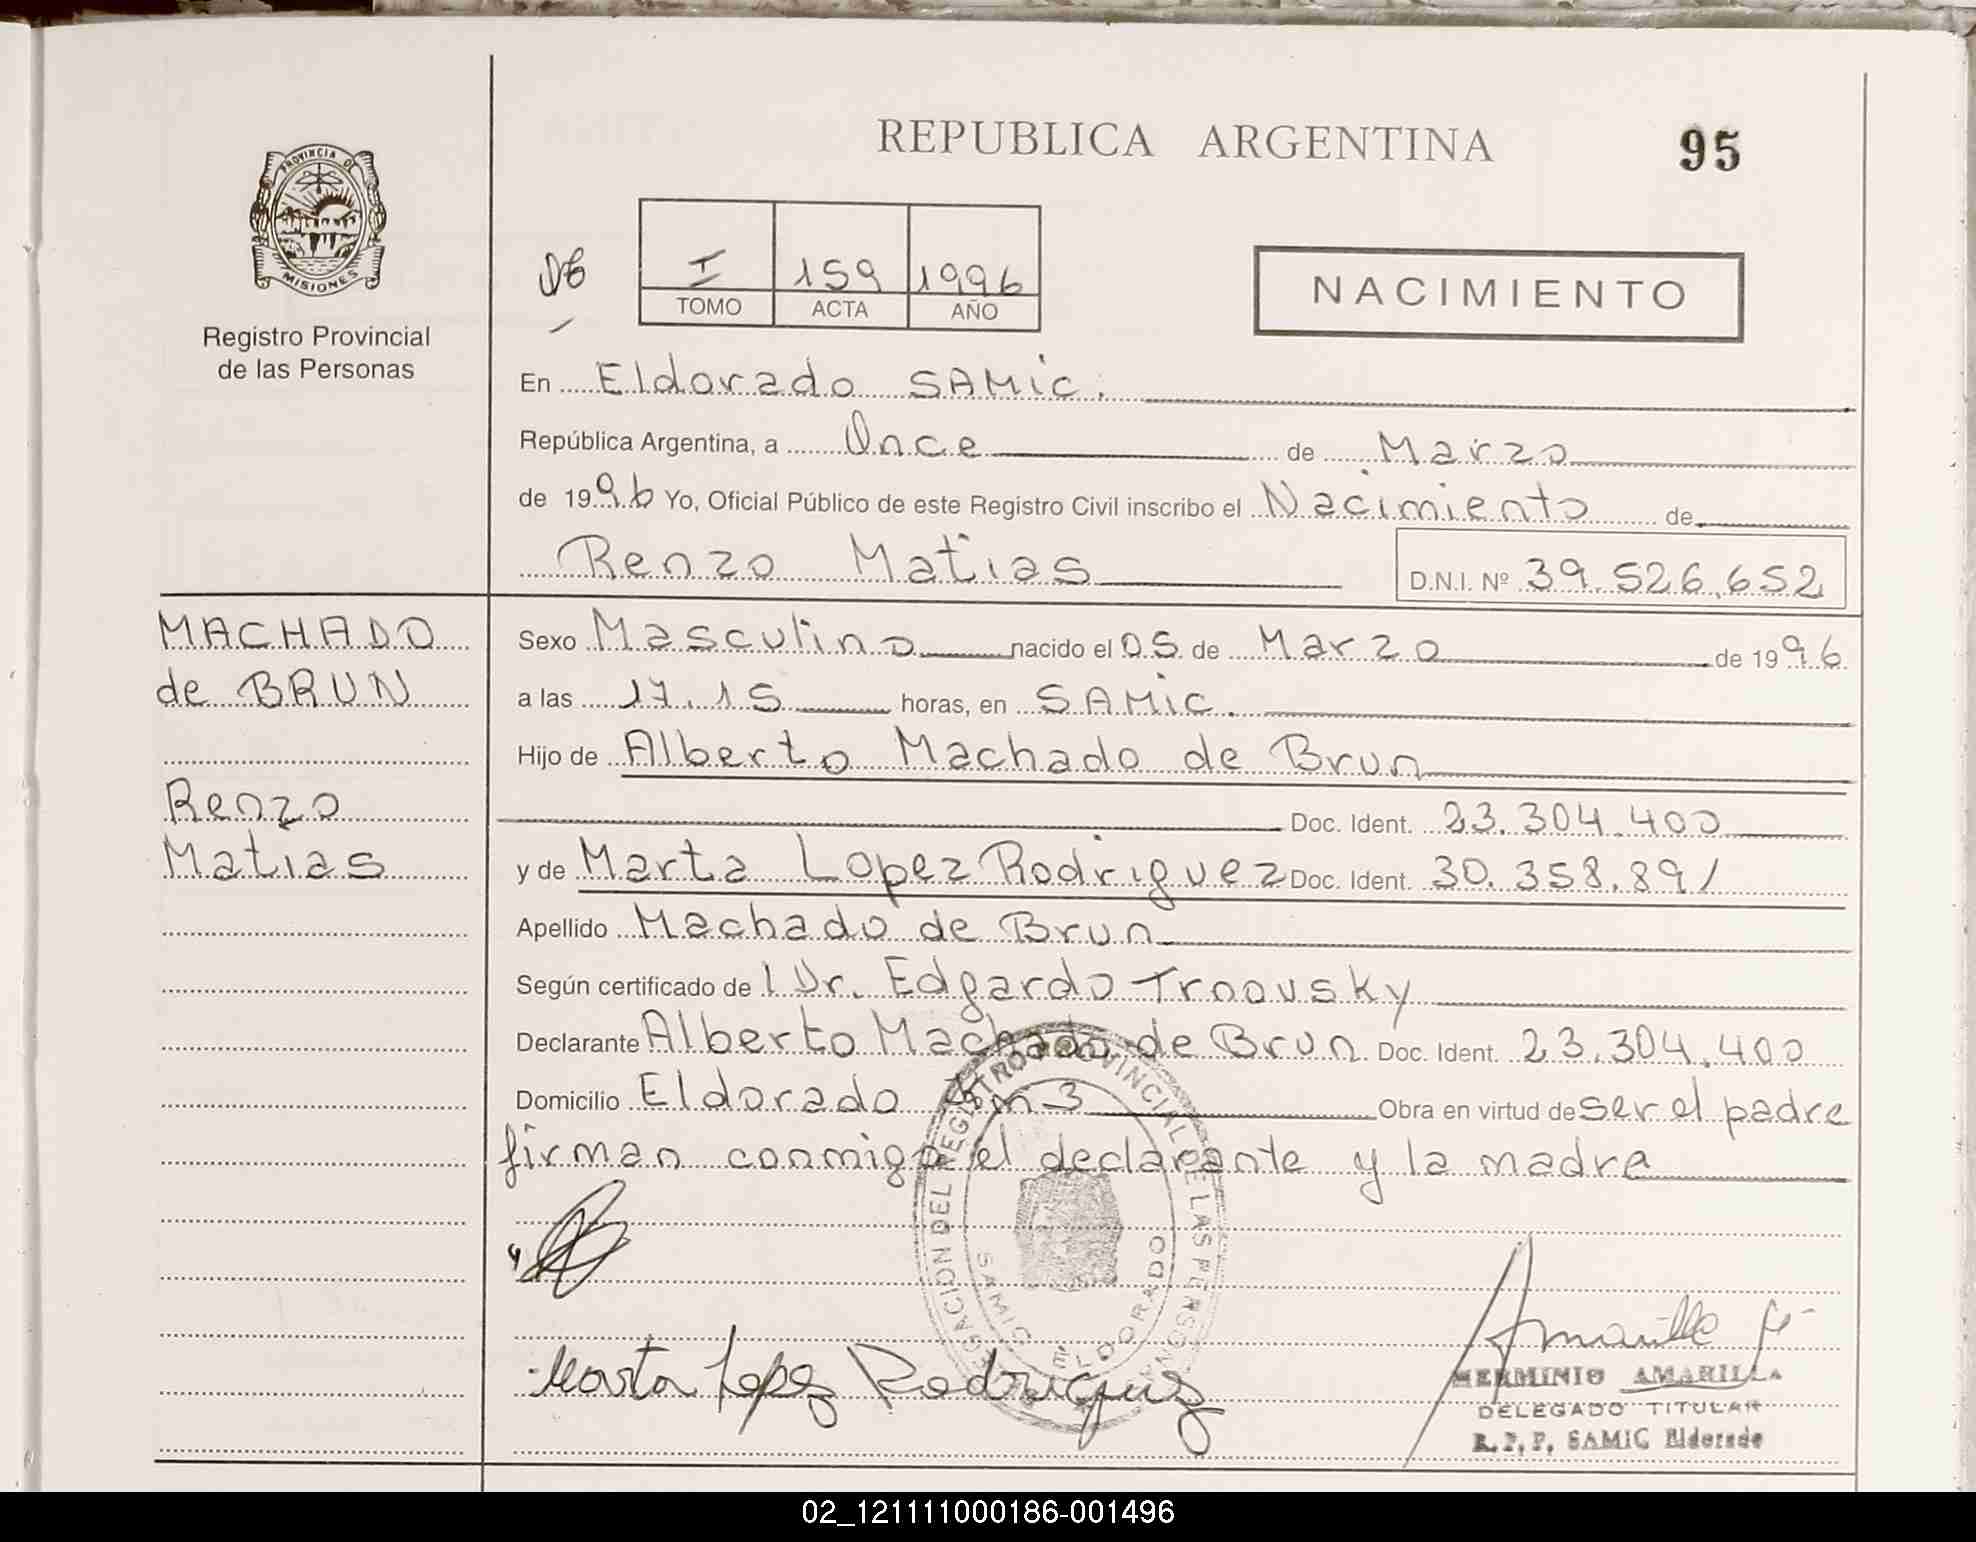 REPUBLICA ARGENTINA
95
PROVINCIA DE MISIONES
Registro Provincial
de las Personas
I 159 1996
TOMO ACTA AÑO
NACIMIENTO
En Eldorado SAMIC.
República Argentina, a Once de Marzo
de 1996 Yo, Oficial Público de este Registro Civil inscribo el Nacimiento de
Renzo Matias D.N.I. Nº 39.526.652
MACHADO
de BRUN
Renzo
Matias
Sexo Masculino nacido el 05 de Marzo de 1996
a las 17.15 horas, en SAMIC.
Hijo de Alberto Machado de Brun
Doc. Ident. 23.304.400
y de Marta Lopez Rodriguez Doc. Ident. 30.358.891
Apellido Machado de Brun
Según certificado de l Dr. Edgardo Trnovsky
Declarante Alberto Machado de Brun Doc. Ident. 23.304.400
Domicilio Eldorado Km 3 Obra en virtud de ser el padre
firman conmigo el declarante y la madre
DELEGACION DEL REGISTRO PROVINCIAL DE LAS PERSONAS
SAMIC ELDORADO
Marta Lopez Rodriguez
Amarilla
HERMINIO AMARILLA
DELEGADO TITULAR
R. P. P. SAMIC Eldorado
02_121111000186-001496